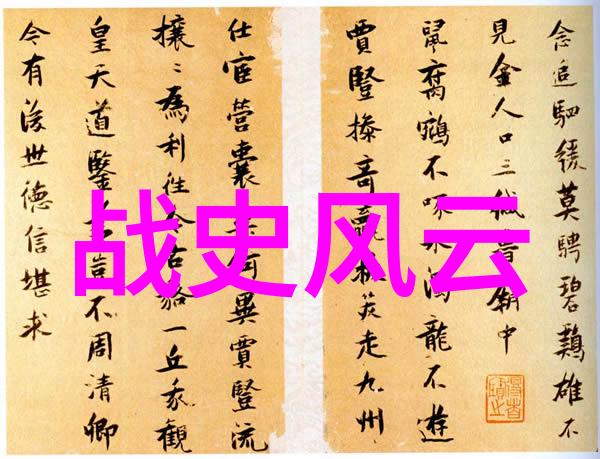 念追駟緩莫騁碧鷄雄不
見金人口三緘中
鼠腐鵷不啄水濁龍不遊
賈豎操奇贏走九州
仕宦營囊何異賈豎流
攘〻為利往今古貉一丘我觀
皇天道鑒豈不周清卿
今有後世德信堪求
战史风云